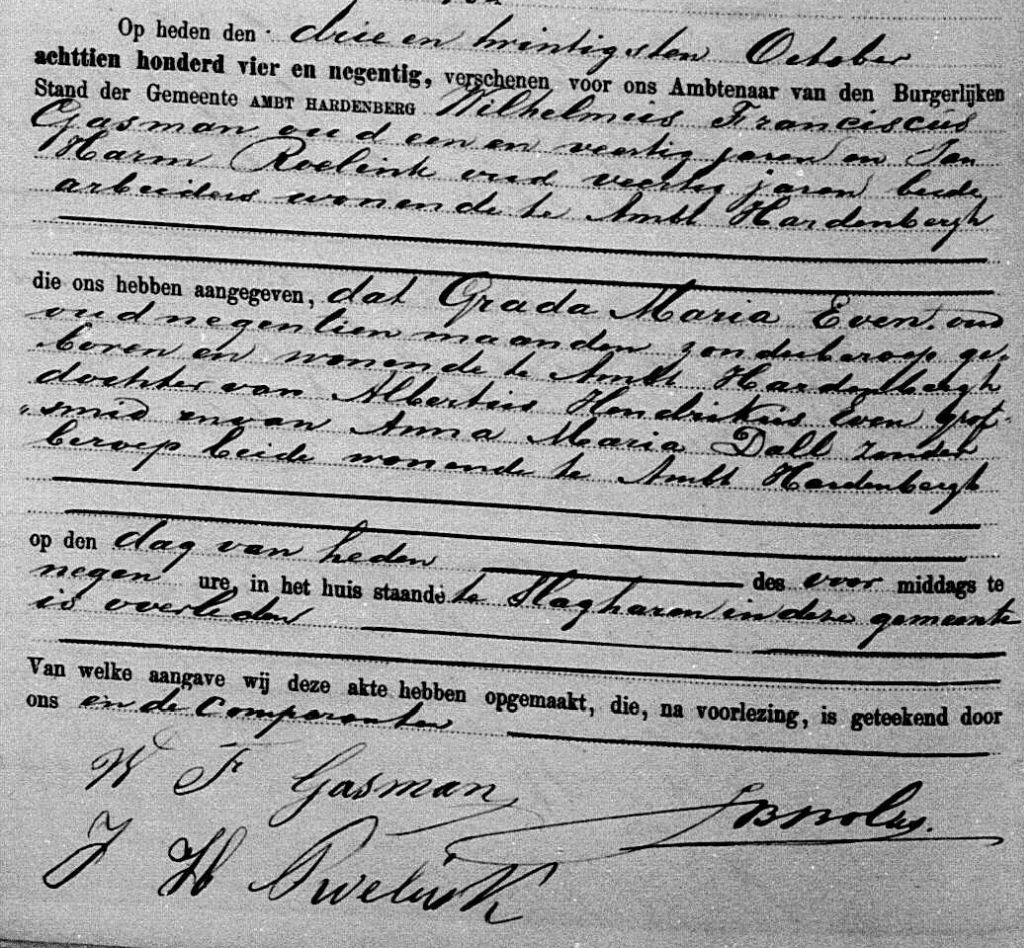 Op heden den drie en twintigsten October
achttien honderd vier en negentig, verschenen voor ons Ambtenaar van den Burgerlijken
Stand der Gemeente AMBT HARDENBERG Wilhelmus Franciscus
Gasman oud een en veertig jaren en Jan
Harm Roelink oud veertig jaren beide
arbeiders wonende te Ambt Hardenbergh
die ons hebben aangegeven, dat Grada Maria Even oud
oud negentien maanden zonder beroep ge-
boren en wonende te Ambt Hardenbergh
dochter van Albertus Hendrikus Even grof-
smid en van Anna Maria Dall zonder
beroep beide wonende te Ambt Hardenbergh
op den dag van heden des voor middags te
negen ure, in het huis staande te Slagharen in deze gemeente
is overleden
Van welke aangave wij deze akte hebben opgemaakt, die, na voorlezing, is geteekend door
ons en de Comparanten
W F Gasman
J H Roelink